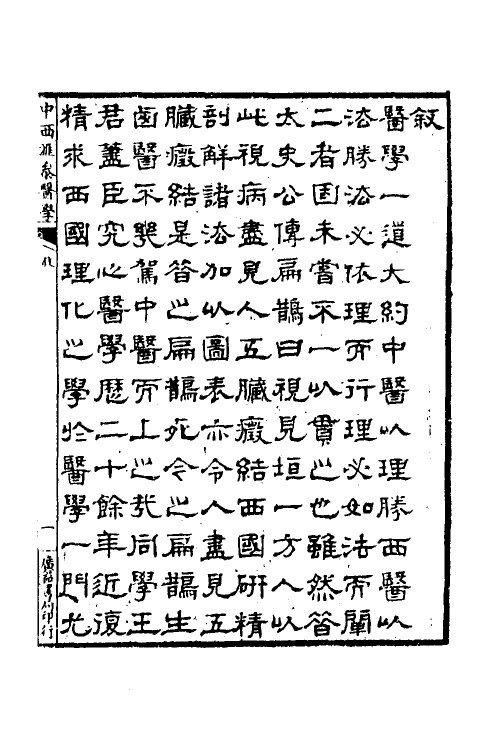 敘
醫學一道大約中醫以理勝西醫以
法勝法必依理而行理必如法而闡
二者固未嘗不一以貫之也雖然昔
太史公傳扁鵲曰視見垣一方人以
此視病盡見人五臟癥結西國研精
剖解諸法加以圖表亦令人盡見五
臟癥結是昔之扁鵲死今之扁鵲生
西醫不幾駕中醫而上之哉同學王
君藎臣究心醫學歷二十餘年近復
精求西國理化之學於醫學一門尤
中西匯參醫學
敘
一
廣益書局印行